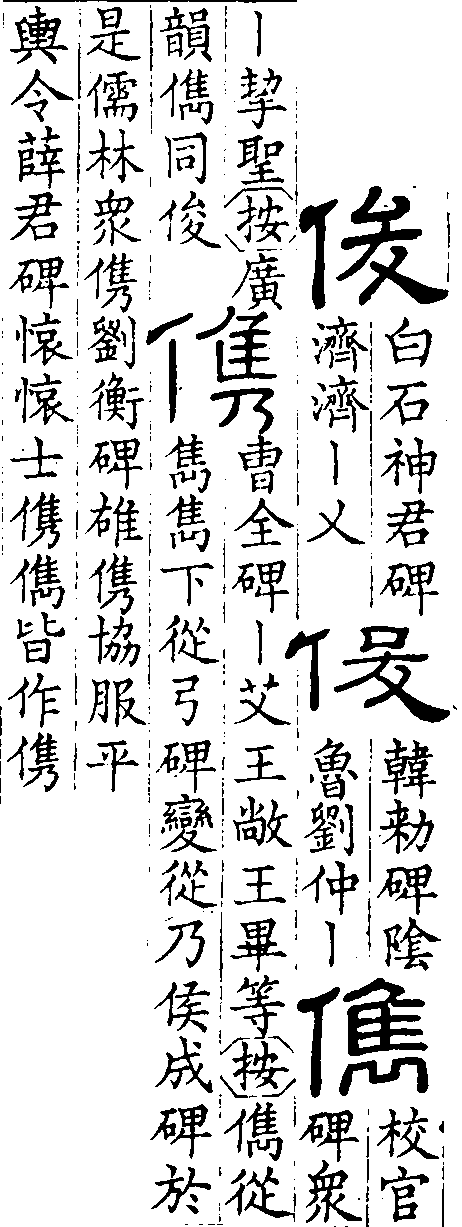 俊
白石神君碑
濟濟丨乂
俊
韓勑碑陰
魯劉仲丨
儁
校官
碑衆
丨挈聖按廣
韻儁同俊
㑺
曹全碑丨艾王敞王畢等按儁從
雋雋下從弓碑變從乃侯成碑於
是儒林衆㑺劉衡碑雄㑺協服平
輿令薛君碑懐懐士㑺儁皆作㑺